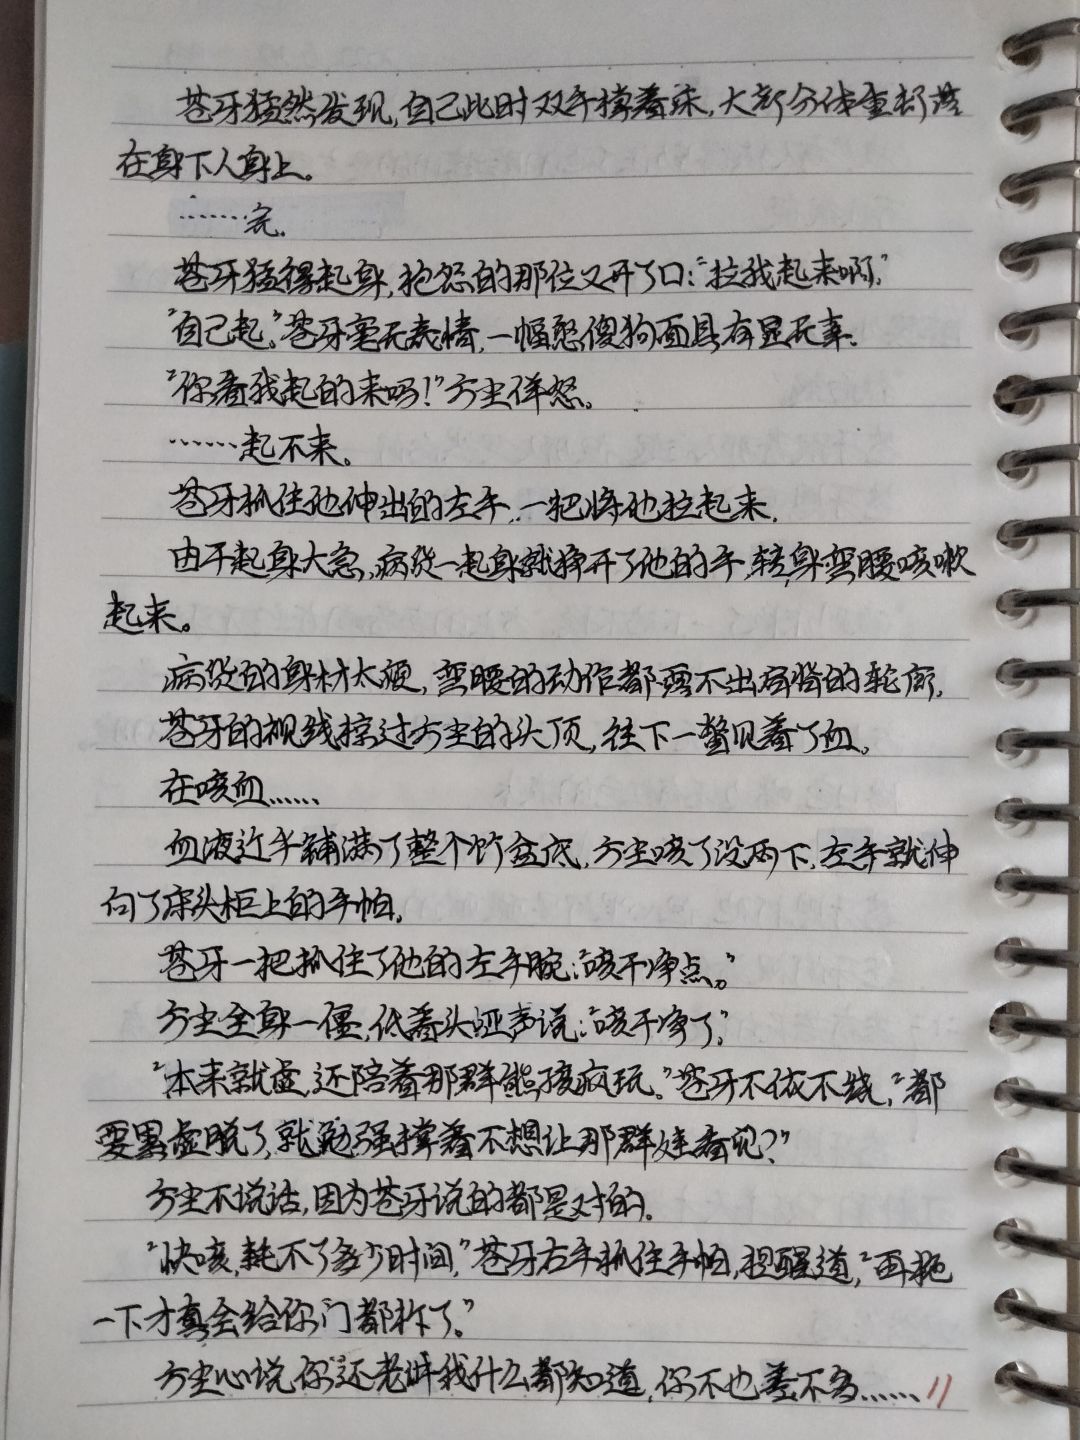 苍牙猛然发现,自己此时双手撑着床,大部分体重都落
在身下人身上。
……完.
苍牙猛得起身,抱怨的那位又开了口:“拉我起来啊,”
“自己起,”苍牙毫无表情,一幅憨傻狗面具有显无辜.
“你看我起的来吗!”方尘佯怒。
……起不来。
苍牙抓住他伸出的左手,一把将他拉起来.
由于起身太急,病秧一起身就挣开了他的手,转身弯腰咳嗽
起来。
病秧的身材太瘦,弯腰的动作都露不出肩脊的轮廓,
苍牙的视线掠过方尘的头顶,往下一瞥见着了血。
在咳血……
血液近乎铺满了整个竹盆底,方尘咳了没两下,左手就伸
向了床头柜上的手帕,
苍牙一把抓住了他的左手腕:“咳干净点。”
方尘全身一僵,低着头哑声说:“咳干净了,”
“本来就虚,还陪着那群熊孩疯玩。”苍牙不依不饶,“都
要累虚脱了,就勉强撑着不想让那群娃看见?”
方尘不说话,因为苍牙说的都是对的。
“快咳,耗不了多少时间,”苍牙右手抓住手帕,提醒道,“再拖
一下才真会给你门都拆了。”
方尘心说你还老讲我什么都知道,你不也差不多……11